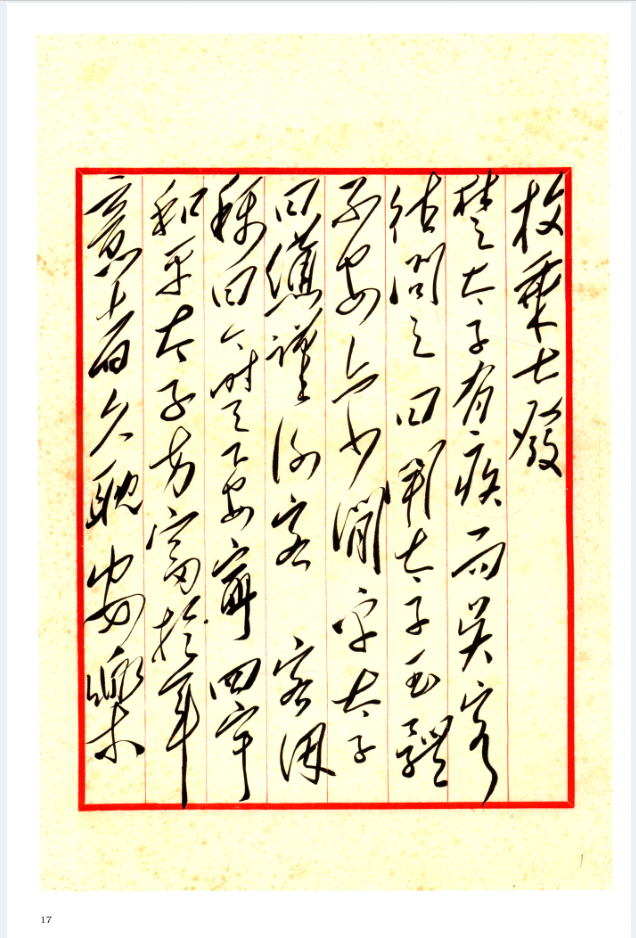 枚乘七發
楚太子有疾而吴客
往問之曰聞太子玉體
不安亦少間乎太子
曰憊謹謝客 客因
稱曰今時天下安寧四宇
和平太子方富於年
意者久耽安樂
17